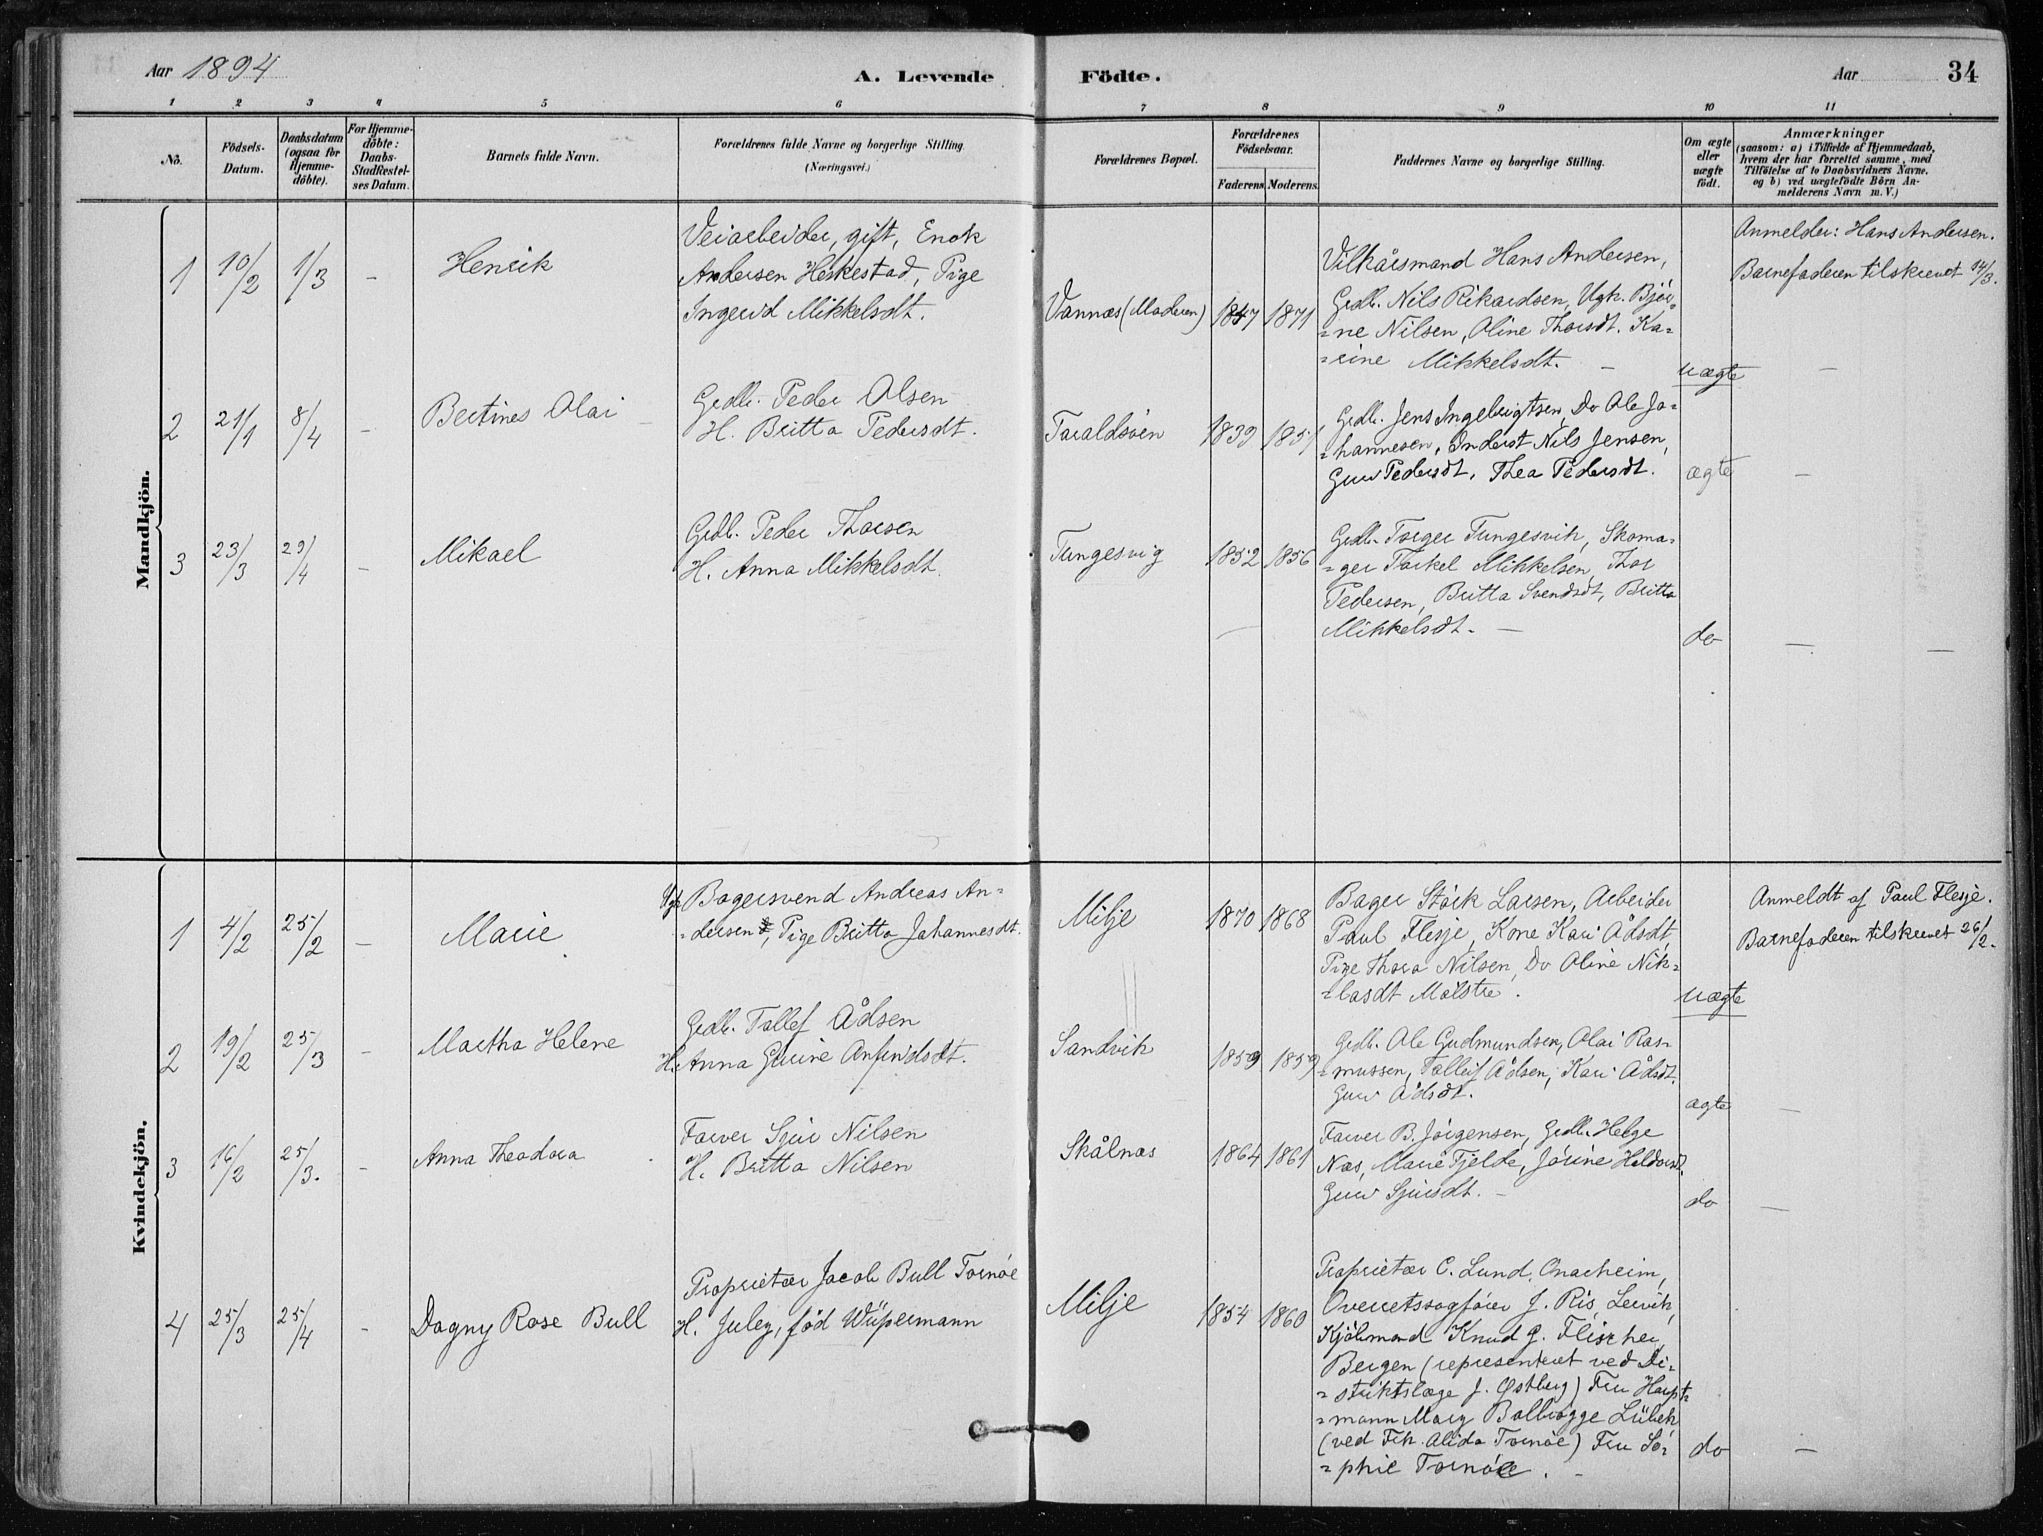 Aar 1894
A. Levende Födte.
Aar 34
1 2 3 4 5 6 7 8 9 10 11
No.
Födsels-Datum.
Daabsdatum (ogsaa for Hjemme-döbte).
For Hjemme-döbte: Daabs-Stadfæstel-ses Datum.
Barnets fulde Navn.
Forældrenes fulde Navne og borgerlige Stilling.
(Næringsvei.)
Forældrenes Bopæl.
Forældrenes Födselsaar.
Faderens. Moderens.
Faddernes Navne og borgerlige Stilling.
Om ægte eller uægte födt.
Anmærkninger
(saasom: a) i Tilfælde af Hjemmedaab,
hvem der har forrettet samme, med
Tilföielse af to Daabsvidners Navne.
og b) ved uægtefödte Börn An-
melderens Navn m. V.)
Mandkjön.
1 10/2 1/3 - Henrik
Veiarbeider, gift, Enok
Andersen Heskestad, Pige
Ingerid Mikkelsdt.
Vannæs (Moderen) 1847 1871
Vilkårsmand Hans Andersen,
Grdb. Nils Rikardsen, Ugk. Bjør-
=ne Nilsen, Oline Thorsdt. Ka-
=rine Mikkelsdt. -
uægte
Anmelder: Hans Andersen.
Barnefaderen tilskrevet 14/3.
-
2 21/1 8/4 - Bertines Olai -
Grdb. Peder Olsen
H. Britta Pedersdt.
Taraldsøen 1839 1851
Grdb. Jens Ingebrigtsen, Do Ole Jo-
=hannesen, Inderst Nils Jensen,
Guro Pedersdt, Thea Pedersdt.
ægte -
3 23/3 29/4 - Mikael
Grdb. Peder Thorsen
H. Anna Mikkelsdt.
Tungesvig 1852 1856
Grdb. Torger Tungesvik, Skoma-
=ger Torkel Mikkelsen, Thor
Pedersen, Britta Svendsdt, Britta
Mikkelsdt. -
do - -
Kvindekjön.
1 4/2 25/2 - Marie
Ugk. Bagersvend Andreas An=
=dersen, Pige Britta Johannesdt.
Milje 1870 1868
Bager Størk Larsen, Arbeider
Paul Flesje, Kone Kari Ådsdt,
Pige Thora Nilsen, Do Oline Nik=
=lasdt Målstre.
uægte
Anmeldt af Paul Flesje.
Barnefaderen tilskrevet 26/2.
2 19/2 25/3 - Martha Helene
Grdb. Tollef Ådsen
H. Anna Gurine Anfindsdt.
Sandvik 1859 1859
Grdb. Ole Gudmundsen, Olai Ras-
=mussen, Tolleif Ådsen, Kari Ådsdt.
Guro Ådsdt.
ægte -
3 16/2 25/3. - Anna Theodora
Farver Sjur Nilsen
H. Britta Nilsen
Skålnæs 1864 1861
Farver B. Jørgensen, Grdb. Helge
Næs, Marie Fjelde, Jørine Haldorsd.
Guro Sjursdt. -
do -
4 25/3 25/4 - Dagny Rose Bull
Proprietær Jacob Bull Tornøe
H. Juley, fød Wüpermann
Milje 1854 1860
Proprietær C. Lund, Onarheim,
Overretssagfører J. Ris, Lervik,
Kjøbmand Knud G. Flischer,
Bergen (representeret ved Di-
=striktslæge J. Østberg) Fru Haupt=
=mann Mary Bolbrügge Lübeck
(ved Frk. Alida Tornøe) Fru So-
=phie Tornøe. -
do -